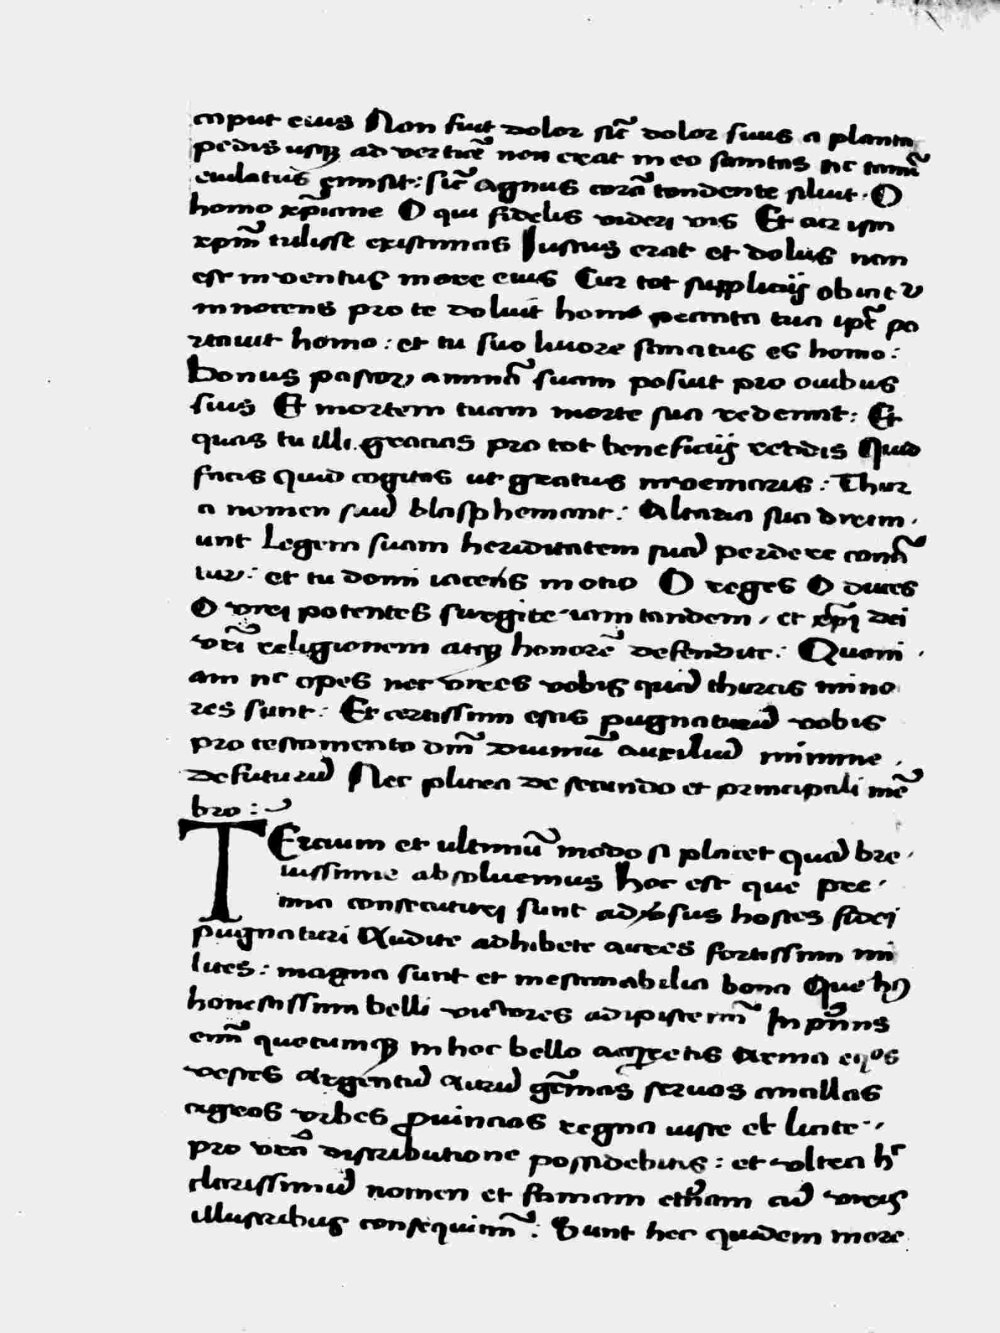 caput eius Non fuit dolor sic̄ dolor suus a planta
pedis usqꝫ ad verticē non erat in eo sanitas nc tamē
eiulatus emisit: sic̄ agnus corā tondente siluit. O
homo xp̄iane O qui fidelis videri vis Et ac ista
xpm̄ tulisse existimas Iustus erat et dolus non
est inventus in ore eius Cur tot supplicijs obiat
innocens pro te doluit homo peccata tua ip̄e po
rtauit homo: et tu suo liuore sanatus es homo:
bonus pastor, animā suam posuit pro ouibus
suis Et mortem tuam morte sua redemit: Et
quas tu illi gracias pro tot beneficijs reddis Quid
facis quid cogitas ut gratus memoraris: Thur
a nomen suū blasphemant: Altaria sua dirim
unt Legem suam heriditatem suā perdere conā
tur: et tu domi iacens in otio O reges O duces
O viri potentes surgite iam tandem, et xp̄i dei
vr̄i religionem atqꝫ honorē defendite: Quoni
am nc opes nec vires vobis quā thurcis mino
res sunt: Et certissimi estis pugnaturū vobis
pro testamento dm̄ Diuinū auxiliū minime
defuturū Nec plura de secundo et principali mē
bro:
TErcium et ultimū modo si placet quā bre
uissime absoluemus hoc est que pre
mia consecuturi sunt adv̄sus hostes fidei
pugnaturi Audite adhibete aures fortissimi mi
lites: magna sunt et inestimabilia bona Que hꝰ
honestissimi belli victores adipiscemī In p̄mis
em̄ quocumqꝫ in hoc bello acquretis Arma eqos
vestes Argentū Aurū gēmas seruos ancillas
agros vrbes ꝓuincias regna iuste et licite
pro vr̄a distributione possidebitis: et vltra hc̄
clarissimū nomen et famam etn̄am cū viris
illustribus consequimī: Sunt hec quidem more